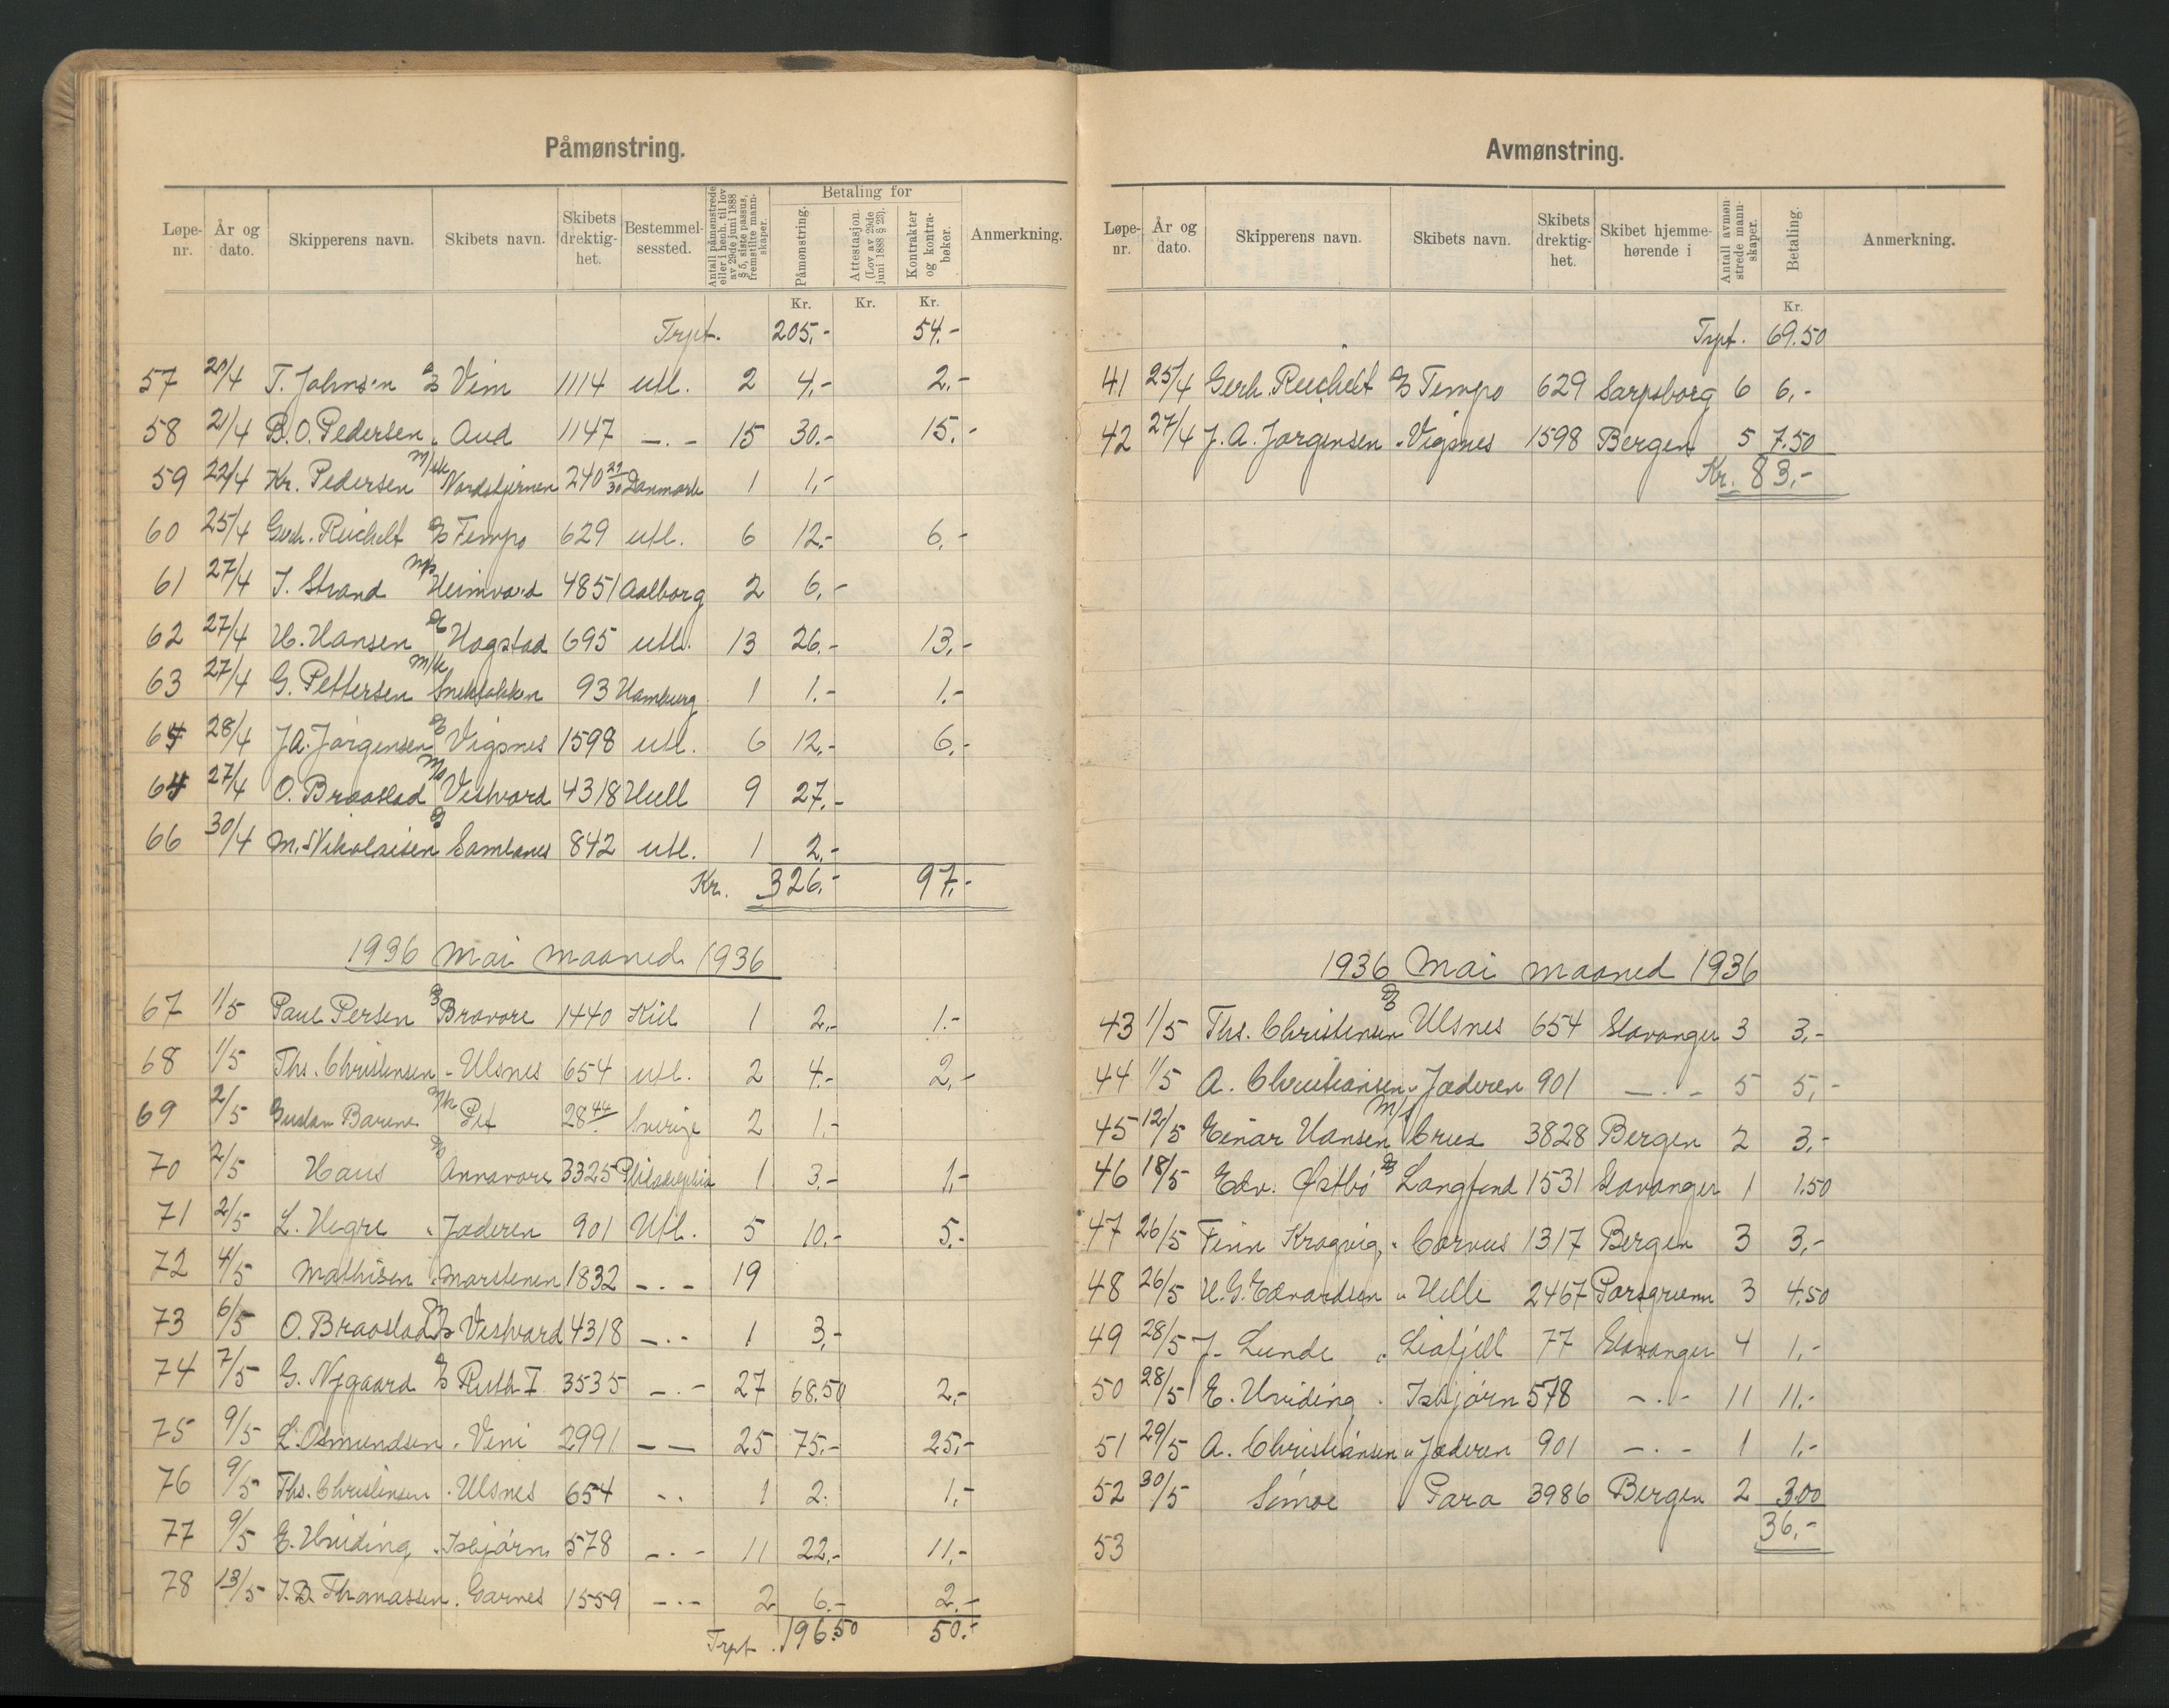 Påmønstring.
Løpe-nr. År og dato. Skipperens navn. Skibets navn. Skibets drektig-het. Bestemmel-sessted. Antall påmønstrede eller i henh. til lov av 29de juni 1888 § 5, siste passus, fremstilte mann-skaper. Betaling for Påmønstring. Attestasjon. (Lov av 29de juni 1888 § 23). Kontrakter og kontra-bøker. Anmerkning.
Kr. Kr. Kr.
Trpt. 205,- 54.-
57 20/4 T. Johnsen Vim 1114 utl. 2 4,- 2,-
58 21/4 B.O. Pedersen " Aud 1147 -.- 15 30.- 15.-
59 22/4 Kr. Pedersen m/sk Nordstjernen 240 29/30 Danmark 1 1,-
60 25/4 Gerh. Reichelt Tempo 629 utl. 6 12.- 6.-
61 27/4 J. Strand m/s Heimvard 4851 Aalborg 2 6,-
62 27/4 H. Hansen Hogstad 695 utl. 13 26.- 13.-
63 27/4 G. Pettersen m/k 93 Hamburg 1 1.- 1.-
64 28/4 J.A. Jørgensen Vigsnes 1598 utl. 6 12.- 6.-
64 27/4 O. Braastad m/s Vestvard 4318 Hull 9 27.-
66 30/4 M. Nikolaisen Samnanes 842 utl. 1 2.-
Kr. 326.- 97.-
1936 Mai maaned 1936
67 1/5 Paul Persen Bravore 1440 Kiel 1 2.- 1.-
68 1/5 Ths. Christensen - Ulsnes 654 utl. 2 4.- 2,-
69 2/5 Gustav m/k Pet 28 44 Sverige 2 1.-
70 2/5 Haus Annavore 3325 Philadelphia 1 3.- 1,-
71 2/5 L. Hegre " Jæderen 901 Utl. 5 10.- 5.-
72 4/5 Mathisen " Marstenen 1832 -.- 19
73 6/5 O. Braastad m/s Vestvard 4318 -.- 1 3,-
74 7/5 G. Nygaard Ruth I 3535 -.- 27 68.50 2,-
75 9/5 L. Osmundsen . Vini 2991 - - 25 75.- 25,-
76 9/5 Ths. Christensen . Ulsnes 654 -. 1 2. 1,-
77 9/5 E. Hviding . Isbjørn 578 -.- 11 22,- 11,-
78 13/5 J.B. Thomassen . Garnes 1559 -.- 2 6.- 2.-
Trpt. 196.50 50.-
Avmønstring.
Løpe-nr. År og dato. Skipperens navn. Skibets navn. Skibets drektig-het. Skibet hjemme-hørende i Antall avmøn-strede mann-skaper. Betaling. Anmerkning.
Kr.
Trpt. 69.50
41 25/4 Gerh. Reichelt Tempo 629 Sarpsborg 6 6,-
42 27/4 J. A. Jørgensen " Vigsnes 1598 Bergen 5 7.50
Kr. 83,-
1936 Mai maaned 1936
43 1/5 Ths. Christensen Ulsnes 654 Stavanger 3 3,-
44 1/5 A. Christiansen " Jæderen 901 -.- 5 5,-
45 12/5 Einar Hansen m/s Crux 3828 Bergen 2 3,-
46 18/5 Edv. Østbö Langfond 1531 Stavanger 1 1.50
47 26/5 Finn Kragvig " Corvus 1317 Bergen 3 3,-
48 26/5 H.G. Edvardsen " Helle 2467 Porsgrunn 3 4.50
49 28/5 J. Lunde " Liafjell 77 Stavanger 4 1,-
50 28/5 E. Hviding . Isbjørn 578 -.- 11 11.-
51 29/5 A. Christiansen " Jæderen 901 -.- 1 1.-
52 30/5 Simoe Para 3986 Bergen 2 3.00
36,-
53